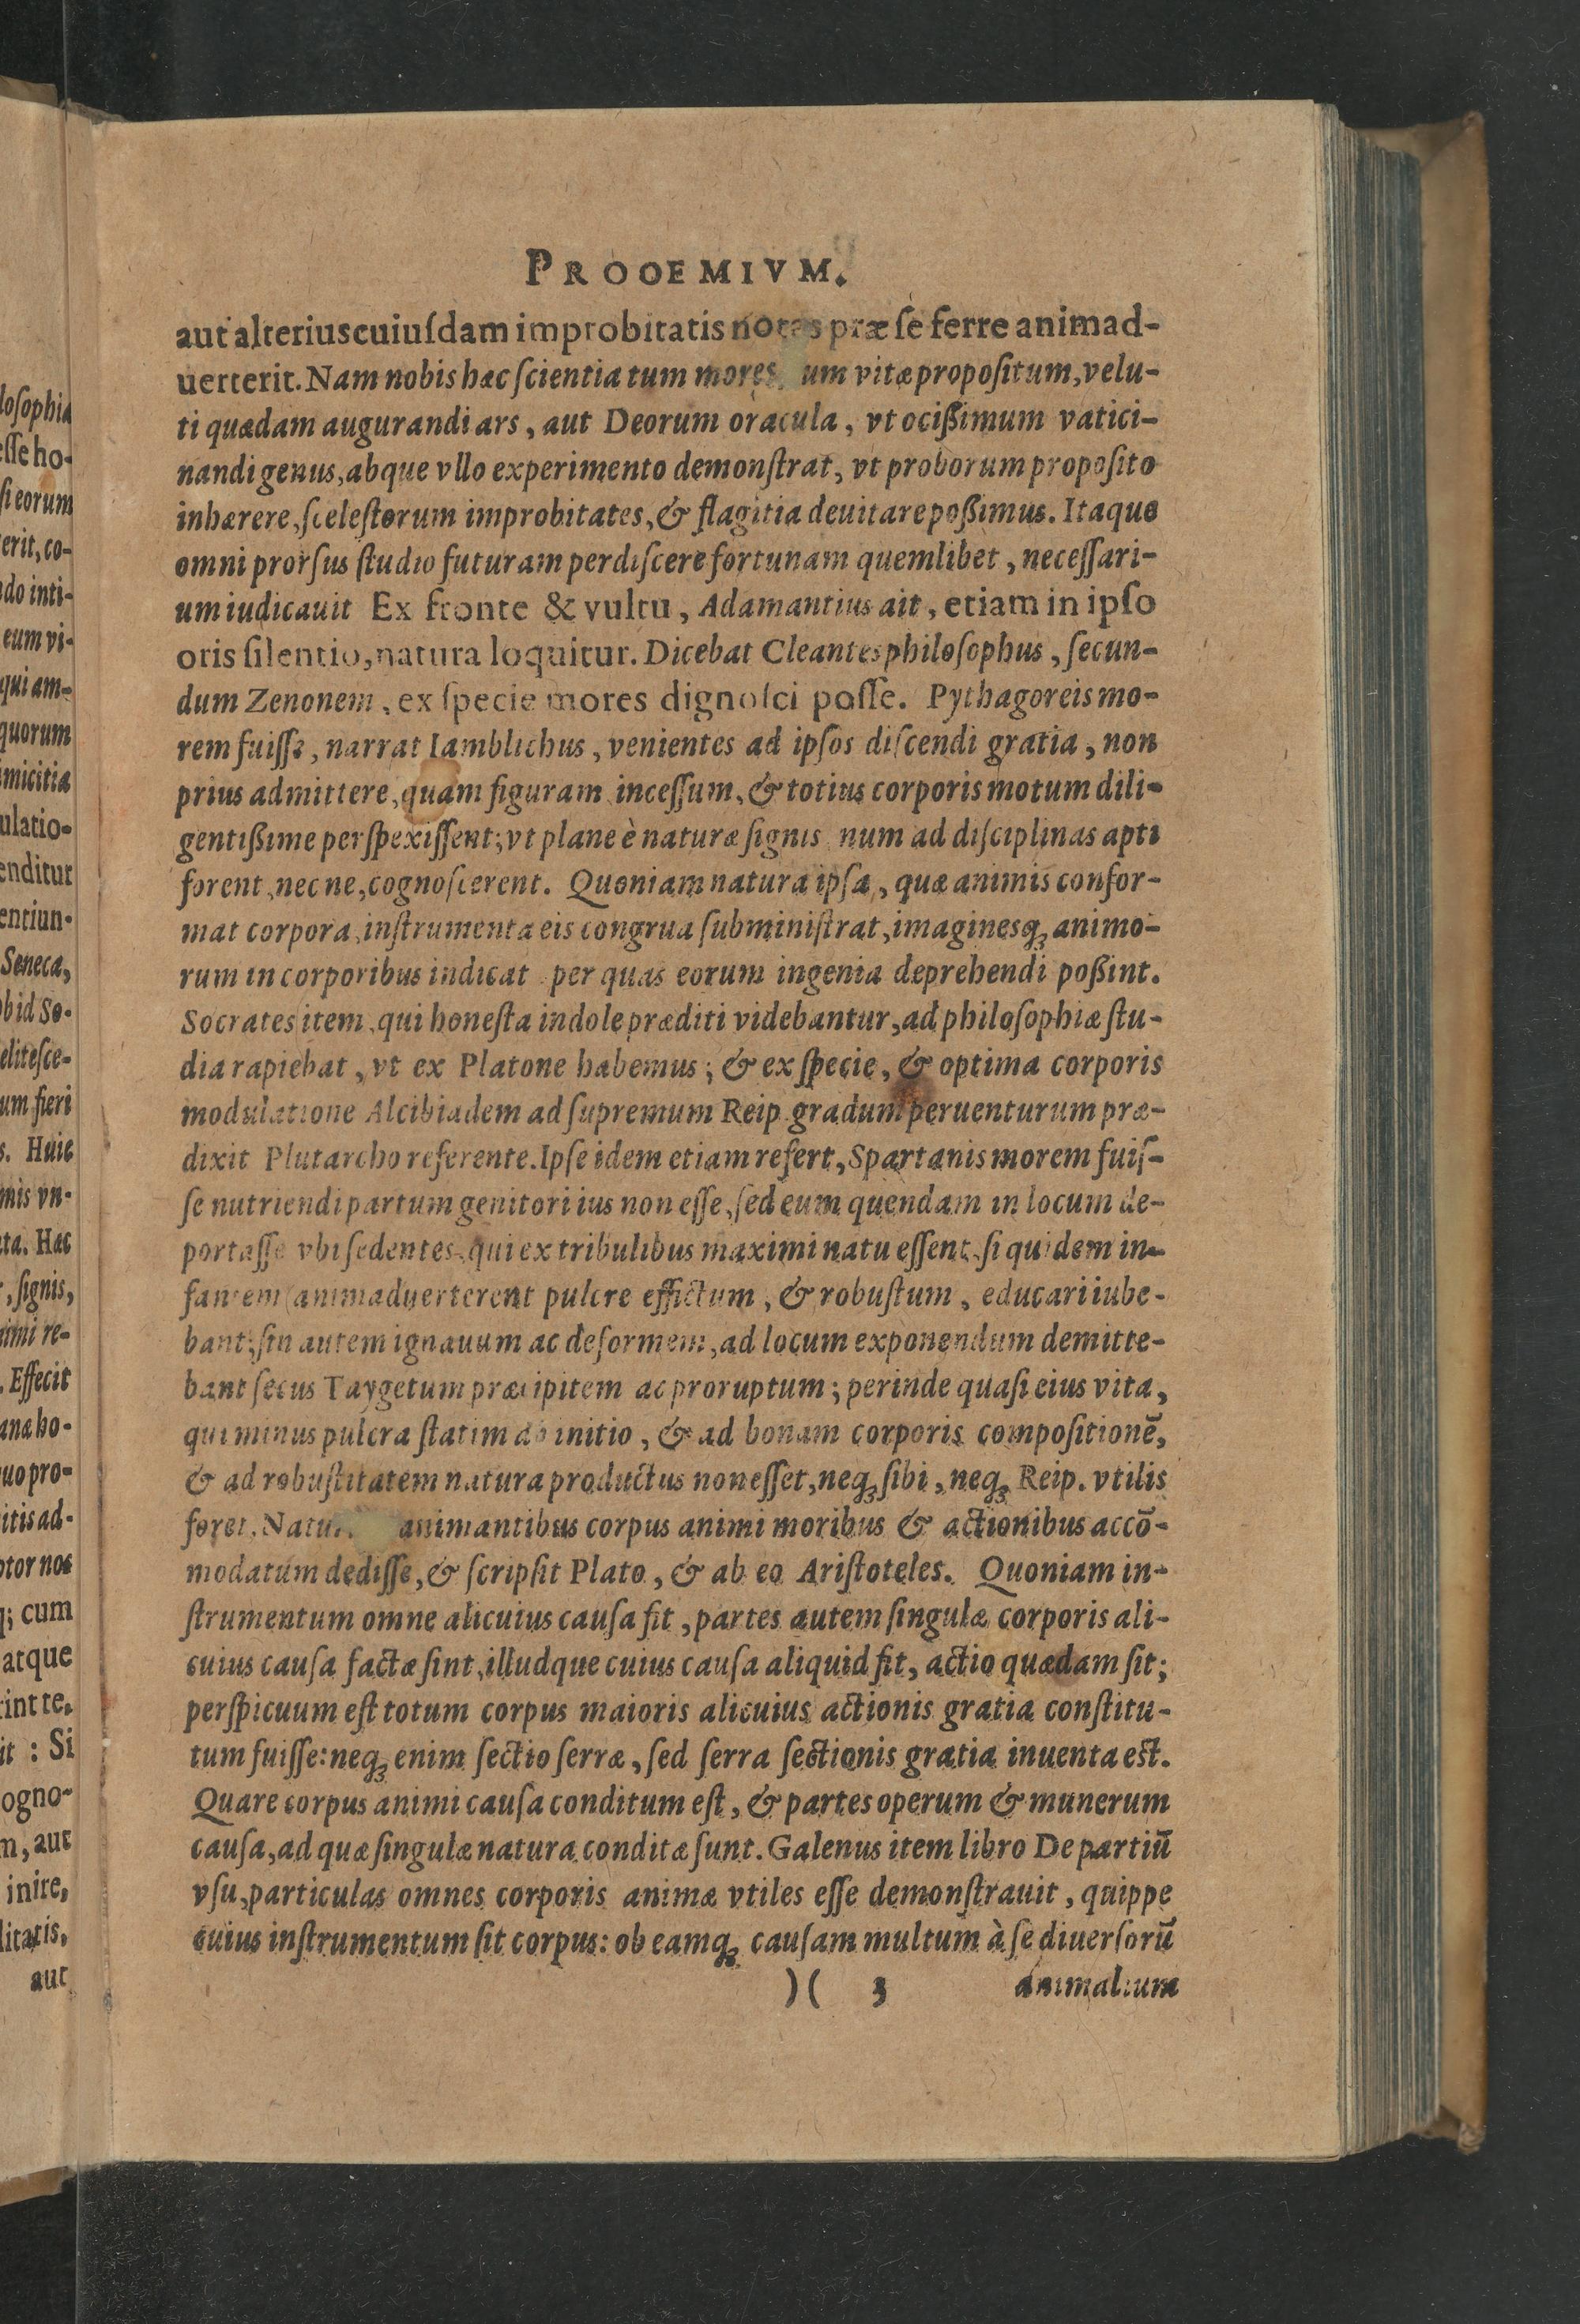 PROOEMIVM.
aut alterius cuiuſdam improbitatis notas præ ſe ferre animad-
uerterit. Nam nobis hæc ſcientia tum mores, um vitæ propoſitum, velu-
ti quædam augurandi ars, aut Deorum oracula, vt ocißimum vatici-
nandi genus, abque vllo experimento demonſtrat, vt proborum propoſito
inhærere, ſceleſtorum improbitates, & flagitia deuitare poßimus. Itaque
omni prorſus ſtudio futuram perdiſcere fortunam quemlibet, neceſſari-
um iudicauit Ex fronte & vultu, Adamantius ait, etiam in ipſo
oris ſilentio, natura loquitur. Dicebat Cleantes philoſophus, ſecun-
dum Zenonem, ex ſpecie mores dignoſci poſſe. Pythagoreis mo-
rem fuiſſe, narrat Iamblichus, venientes ad ipſos diſcendi gratia, non
prius admittere, quam figuram, inceſſum, & totius corporis motum dili-
gentißime perſpexiſſent; vt plane è naturæ ſignis num ad diſciplinas apti
forent, nec ne, cognoſcerent. Quoniam natura ipſa, quæ animis confor-
mat corpora, inſtrumenta eis congrua ſubminiſtrat, imaginesq; animo-
rum in corporibus indicat per quas eorum ingenia deprehendi poßint.
Socrates item, qui honeſta indole præditi videbantur, ad philoſophiæ ſtu-
dia rapiebat, vt ex Platone habemus; & ex ſpecie, & optima corporis
modulatione Alcibiadem ad ſupremum Reip. gradum peruenturum præ-
dixit Plutarcho referente. Ipſe idem etiam refert, Spartanis morem fuiſ-
ſe nutriendi partum genitori ius non eſſe, ſed eum quendam in locum de-
portaſſe vbi ſedentes, qui ex tribulibus maximi natu eſſent, ſi quidem in-
fantem animaduerterent pulcre effictum, & robuſtum, educari iube-
bant; ſin autem ignauum ac deformem, ad locum exponendum demitte-
bant ſecus Taygetum præcipitem ac proruptum; perinde quaſi eius vita,
qui minus pulcra ſtatim ab initio, & ad bonam corporis compoſitionē,
& ad robuſtitatem natura productus non eſſet, neq; ſibi, neq; Reip. vtilis
foret. Natur animantibus corpus animi moribus & actionibus accō-
modatum dediſſe, & ſcripſit Plato, & ab eo Ariſtoteles. Quoniam in-
ſtrumentum omne alicuius cauſa fit, partes autem ſingulæ corporis ali-
cuius cauſa factæ ſint, illudque cuius cauſa aliquid fit, actio quædam ſit;
perſpicuum eſt totum corpus maioris alicuius actionis gratia conſtitu-
tum fuiſſe: neq; enim ſectio ſerræ, ſed ſerra ſectionis gratia inuenta eſt.
Quare corpus animi cauſa conditum eſt, & partes operum & munerum
cauſa, ad quæ ſingulæ natura conditæ ſunt. Galenus item libro De partiū
vſu, particulas omnes corporis animæ vtiles eſſe demonſtrauit, quippe
cuius inſtrumentum ſit corpus: ob eamq; cauſam multum à ſe diuerſorū
)( 3 animalium